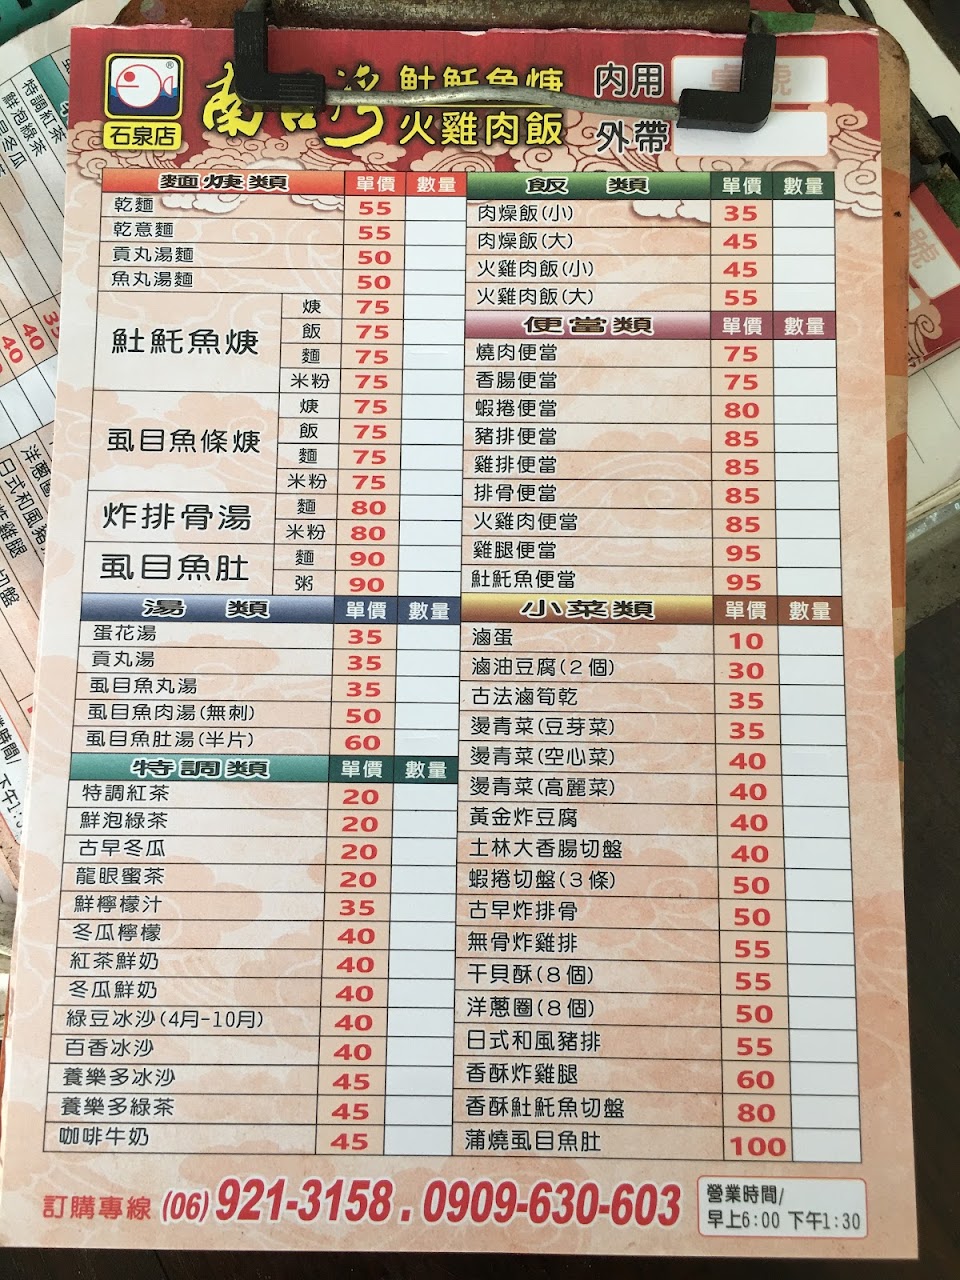 石泉店
南台灣
魠魠魚焿
火雞肉飯
內用
外帶
麵焿類 單價 數量
乾麵 55
乾意麵 55
貢丸湯麵 50
魚丸湯麵 50
魠魠魚焿
焿 75
飯 75
麵 75
米粉 75
虱目魚條焿
焿 75
飯 75
麵 75
米粉 75
炸排骨湯
麵 80
米粉 80
虱目魚肚
麵 90
粥 90
湯類 單價 數量
蛋花湯 35
貢丸湯 35
虱目魚丸湯 35
虱目魚肉湯(無刺) 50
虱目魚肚湯(半片) 60
特調類 單價 數量
特調紅茶 20
鮮泡綠茶 20
古早冬瓜 20
龍眼蜜茶 20
鮮檸檬汁 35
冬瓜檸檬 40
紅茶鮮奶 40
冬瓜鮮奶 40
綠豆冰沙(4月-10月) 40
百香冰沙 40
養樂多冰沙 45
養樂多綠茶 45
咖啡牛奶 45
飯類 單價 數量
肉燥飯(小) 35
肉燥飯(大) 45
火雞肉飯(小) 45
火雞肉飯(大) 55
便當類 單價 數量
燒肉便當 75
香腸便當 75
蝦捲便當 80
豬排便當 85
雞排便當 85
排骨便當 85
火雞肉便當 85
雞腿便當 95
魠魠魚便當 95
小菜類 單價 數量
滷蛋 10
滷油豆腐(2個) 30
古法滷筍乾 35
燙青菜(豆芽菜) 35
燙青菜(空心菜) 40
燙青菜(高麗菜) 40
黃金炸豆腐 40
士林大香腸切盤 40
蝦捲切盤(3條) 50
古早炸排骨 50
無骨炸雞排 55
干貝酥(8個) 55
洋蔥圈(8個) 50
日式和風豬排 55
香酥炸雞腿 60
香酥魠魠魚切盤 80
蒲燒虱目魚肚 100
訂購專線 (06)921-3158．0909-630-603
營業時間/
早上6:00 下午1:30